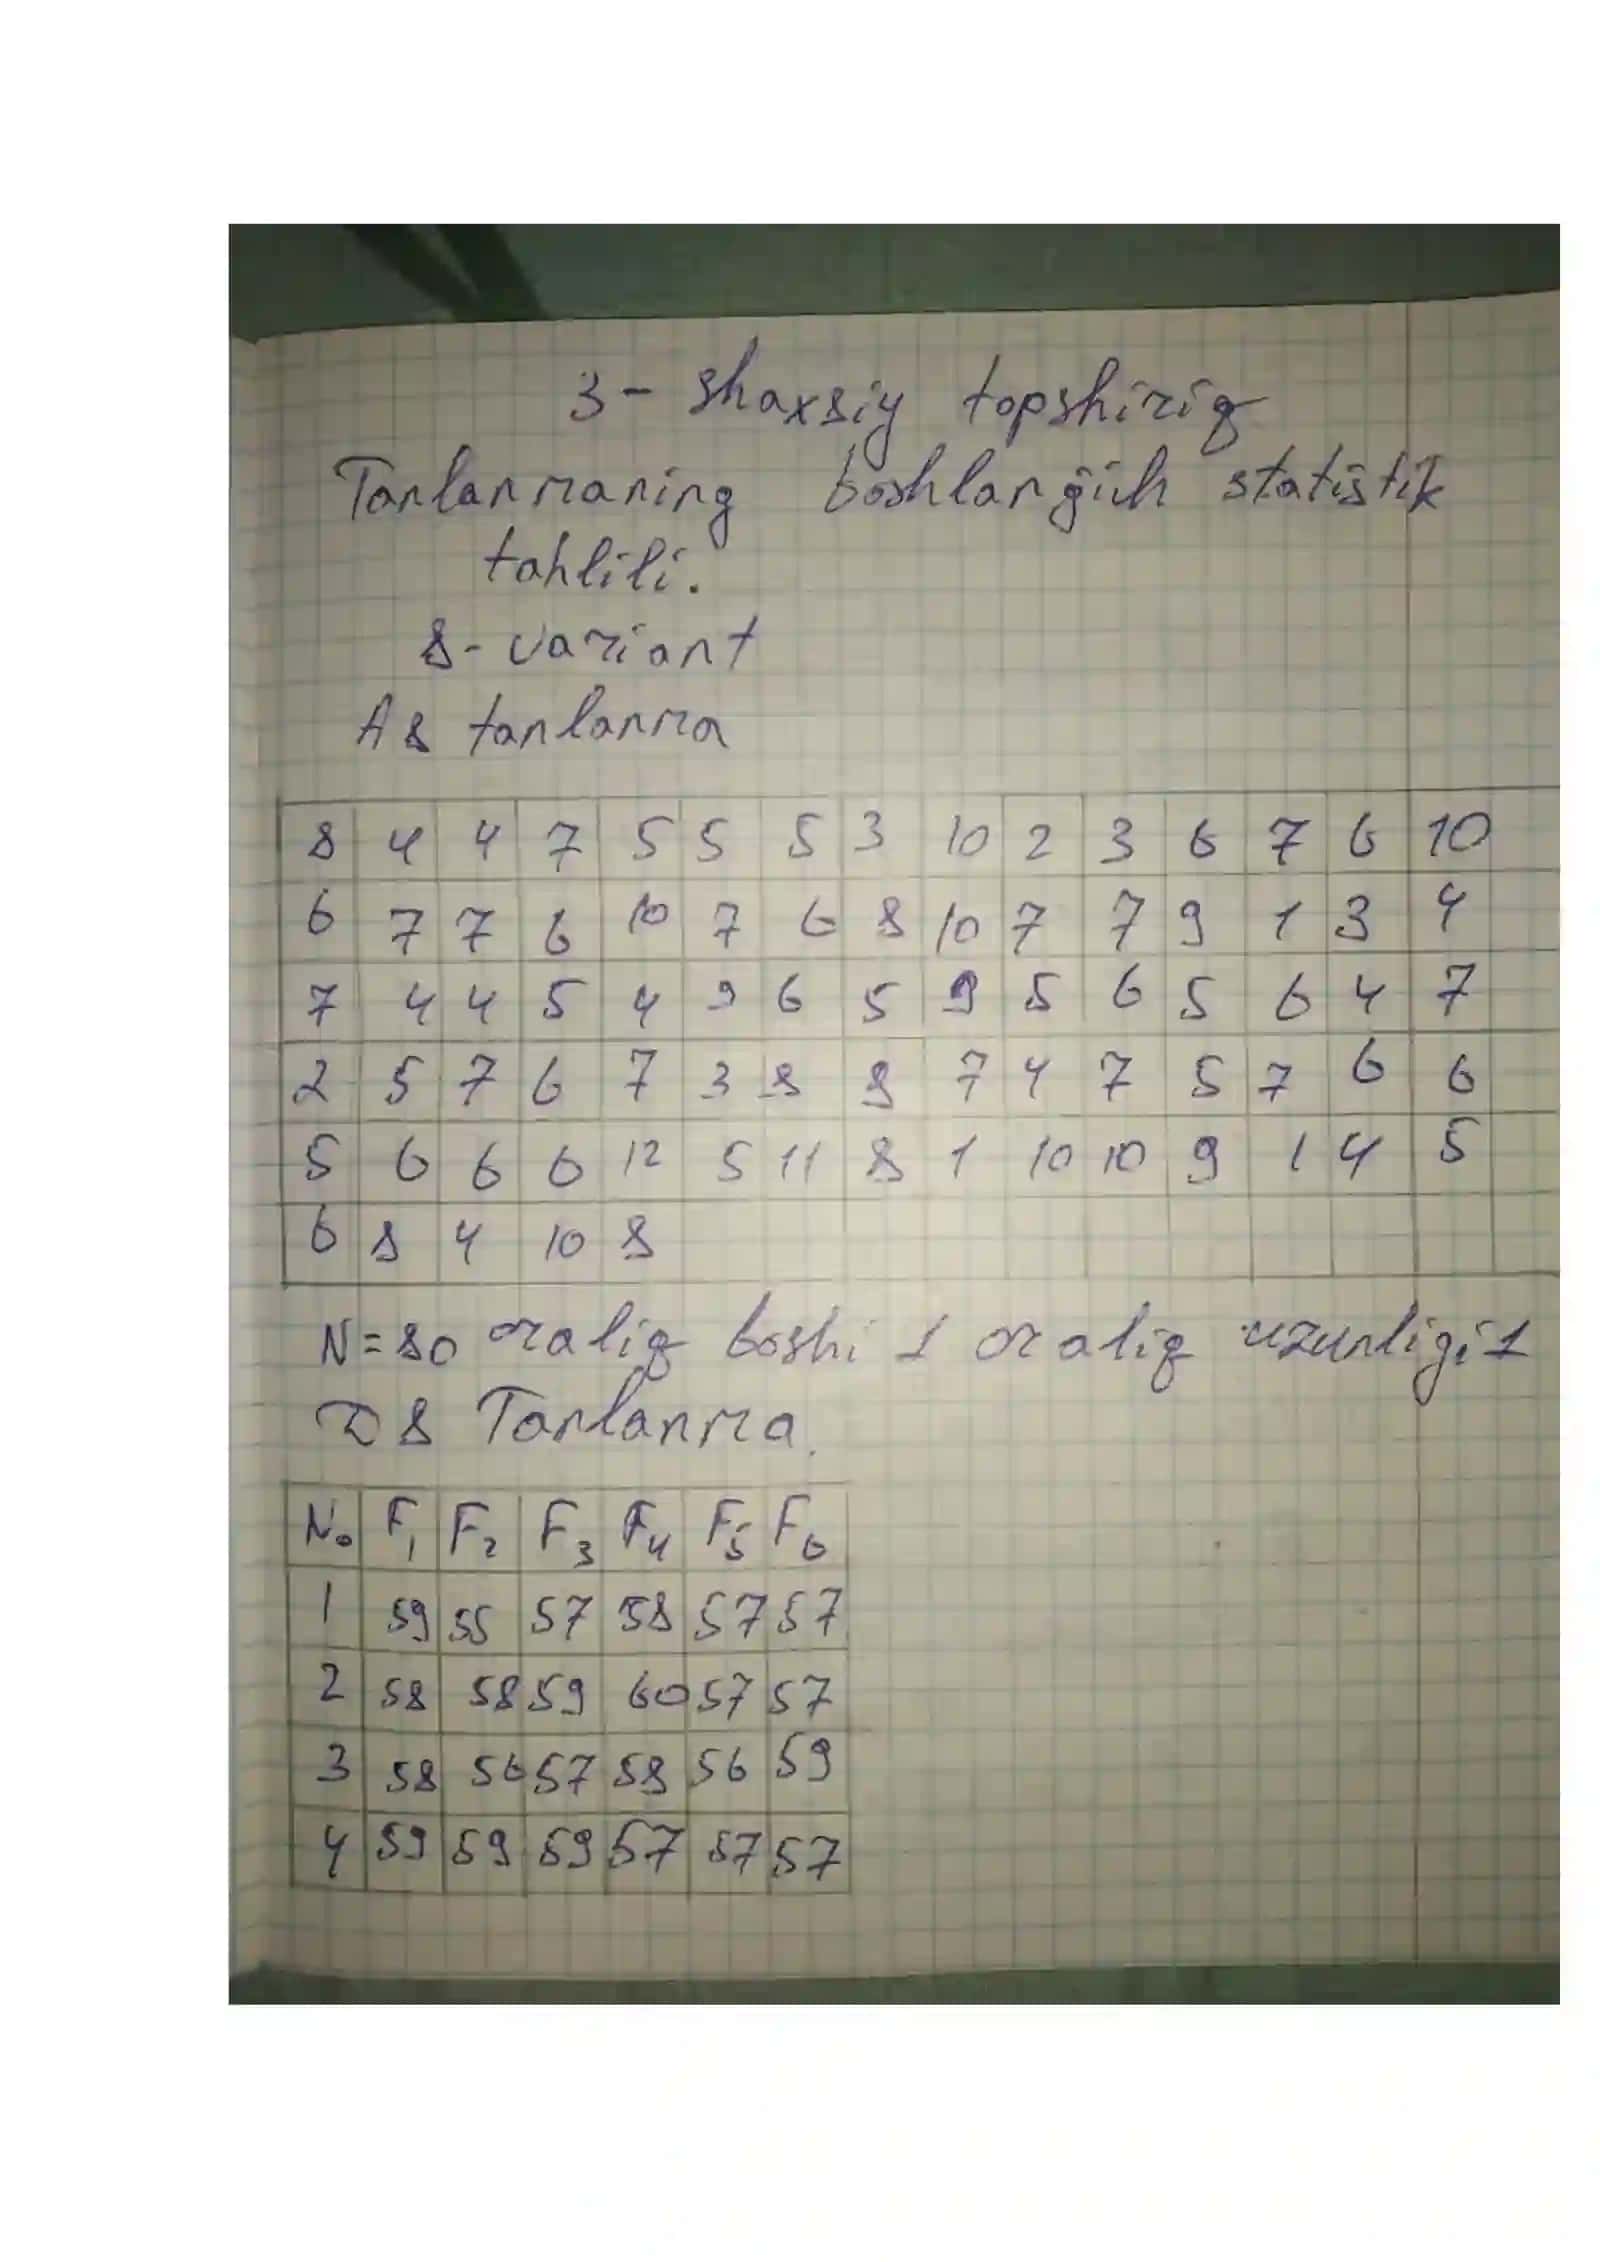 3- shaxsiy topshiriq
Tanlanmaning boshlang'ich statistik
tahlili.
8- variant
A8 tanlanma
8 4 4 7 5 5 5 3 10 2 3 6 7 6 10
6 7 7 6 10 7 6 8 10 7 7 9 1 3 4
7 4 4 5 4 9 6 5 9 5 6 5 6 4 7
2 5 7 6 7 3 8 8 7 4 7 5 7 6 6
5 6 6 6 12 5 11 8 1 10 10 9 1 4 5
6 8 4 10 8
N=80 oraliq boshi 1 oraliq uzunligi 1
D 8 Tanlanma.
No F1 F2 F3 F4 F5 F6
1 59 55 57 58 57 57
2 58 58 59 60 57 57
3 58 56 57 58 56 59
4 59 59 59 57 57 57